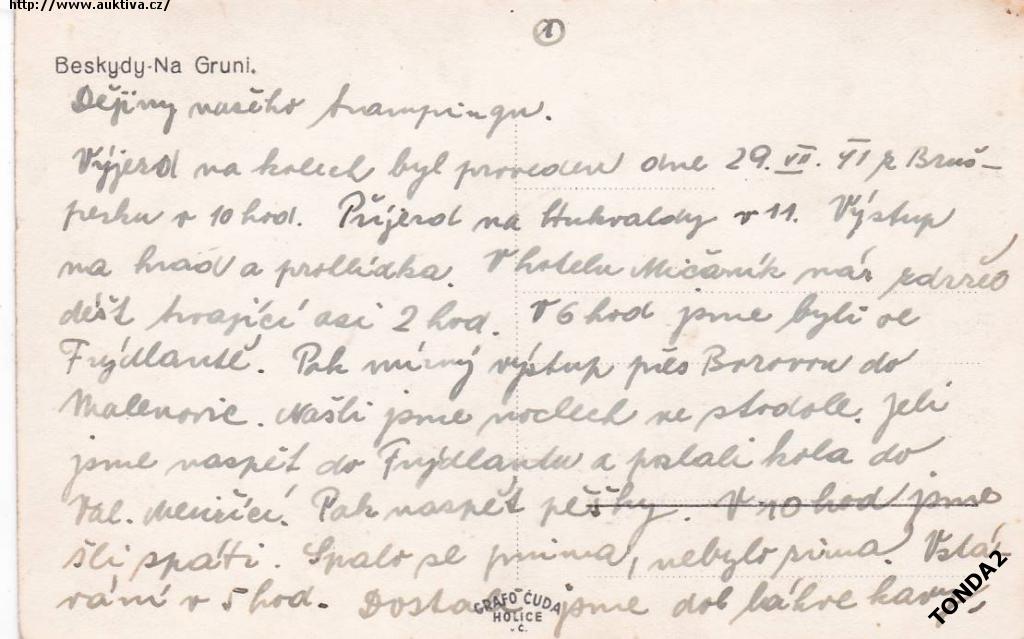 http://www.auktiva.cz/
1
Beskydy-Na Gruni.
Dějiny našeho trampingu.
Výjezd na kolech byl proveden dne 29. VII. 41 z Bruš-
perku v 10 hod. Příjezd na Hukvaldy v 11. Výstup
na hrad a prohlídka. V hotelu Mičaník nás zdržel
déšť trvající asi 2 hod. V 6 hod jsme byli ve
Frýdlantě. Pak mírný výstup přes Borovou do
Malenovic. Našli jsme nocleh ve stodole. Jeli
jsme naspět do Frýdlantu a poslali kola do
Val. Meziříčí. Pak naspět pěšky. V 10 hod jsme
šli spáti. Spalo se prima, nebylo zima. Vstá-
vání v 5 hod. Dostali jsme dob láhve kávy
GRAFO ČUDA
HOLICE
v Č.
TONDA2